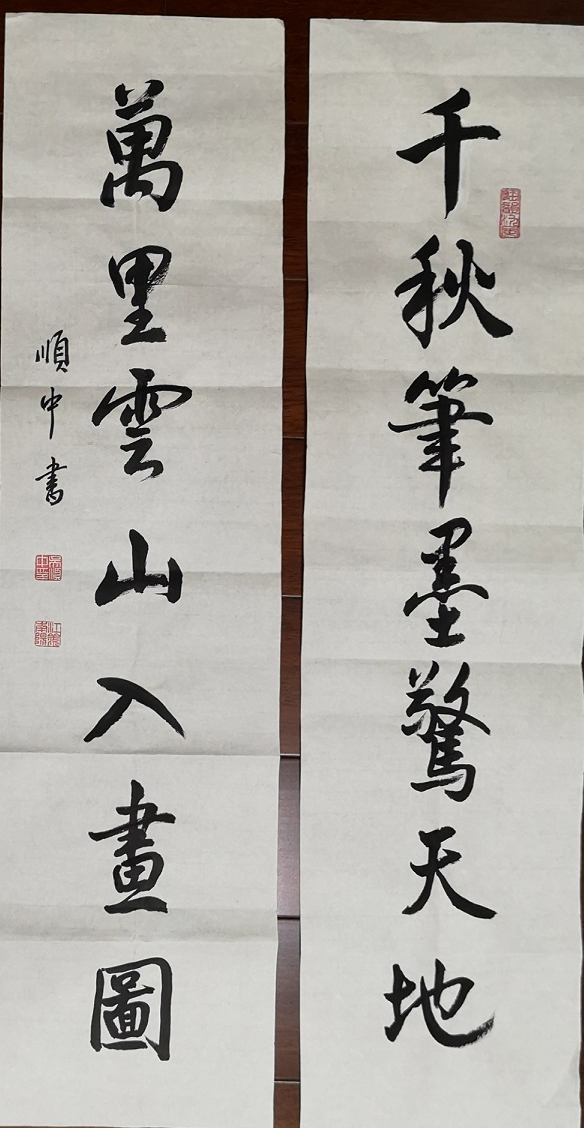 千秋筆墨驚天地
萬里雲山入畫圖
順中書